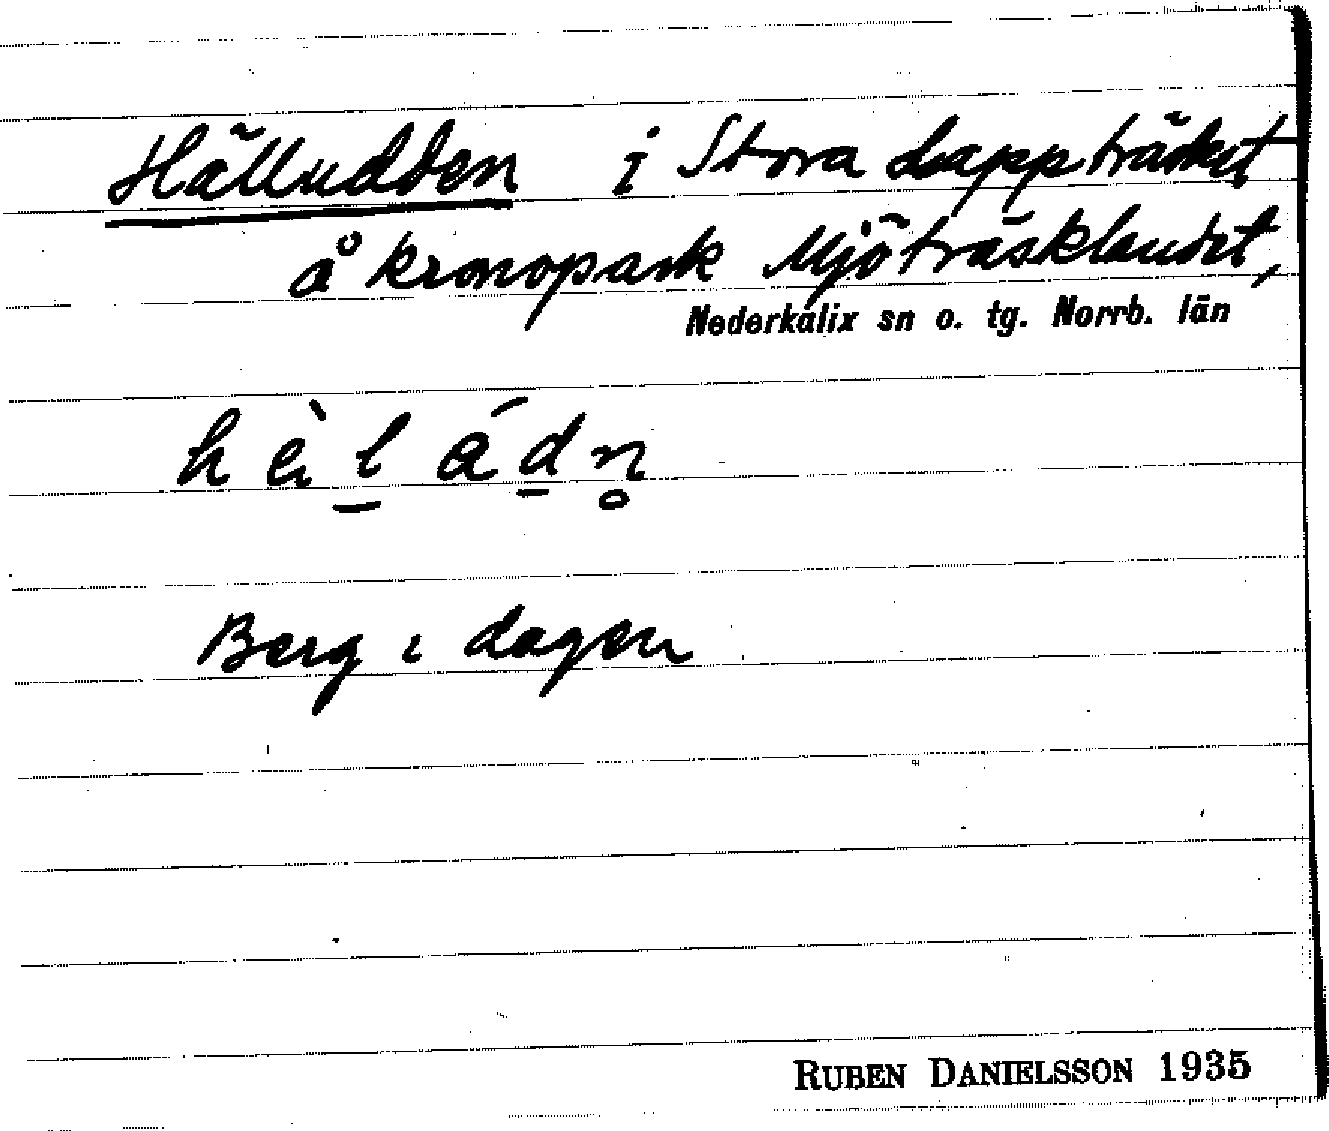 Hälludden i Stora Lappträsket
å kronopark Mjöträsklandet,
Nederkalix sn o. tg. Norrb. län
hὲl̲ ád̲n̥
Berg i dagen
RUBEN DANIELSSON 1935